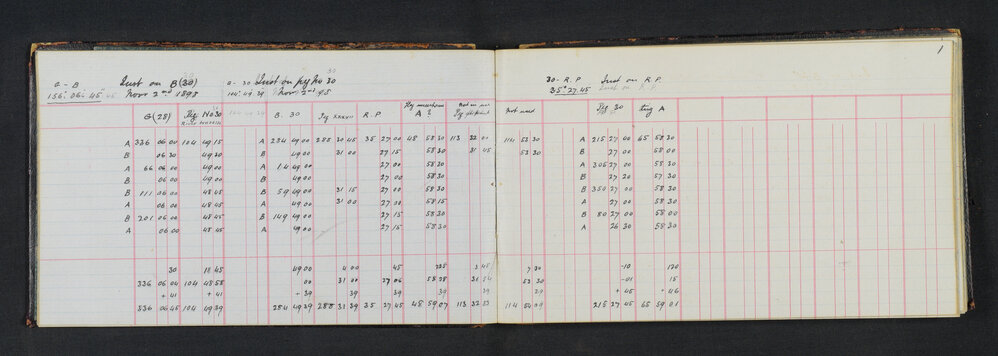 1
a - B Inst on B (30) a - 30 Inst on peg No 30 30 - R.P. Inst on R.P.
156° 06' 45" Novr 2nd 1895 104 49 39 Novr 2nd 95 35° 27' 45
G (28) Peg No 30 B. 30 Peg XXXVII R.P. A Not used Peg 30 A
A 336 06 00 104 49 15 A 284 49 00 288 30 45 35 27 00 48 58 30 113 32 00 114 53 30 A 215 27 40 65 58 30
B 06 30 49 30 B 49 00 31 00 27 15 58 30 31 45 53 30 B 27 00 58 00
A 66 06 00 49 00 A 14 49 00 27 00 58 30 A 305 27 00 58 30
B 06 00 49 00 B 49 00 27 00 58 30 B 27 20 57 30
B 111 06 00 48 45 B 59 49 00 31 15 27 00 58 30 B 350 27 00 58 30
A 06 00 48 45 A 49 00 31 00 27 00 58 15 A 27 00 58 30
B 201 06 00 48 45 B 149 49 00 27 15 58 30 B 80 27 00 58 00
A 06 00 48 45 A 49 00 27 15 58 30 A 26 30 58 30
30 11 45 49 00 4 00 45 3 45 7 30 -10 120
336 06 04 104 48 58 00 31 00 27 06 58 28 31 54 53 30 -01 15
+ 41 + 41 + 39 39 39 39 39 39 + 45 + 46
336 06 45 104 49 39 284 49 39 288 31 39 35 27 45 48 59 07 113 32 33 114 54 09 215 27 45 65 59 01